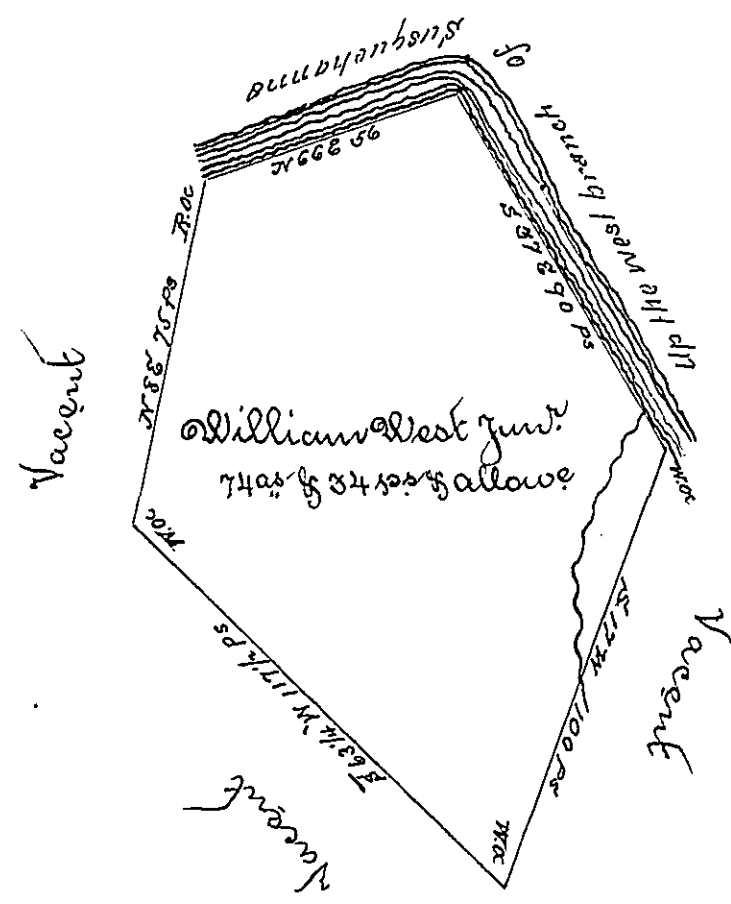 Up the West branch
of
Susquehanna
N 66 E 56
S 27 E 90 ps
R.OC
N 8 E 75 ps
Vacent
William West Junr.
74 as & 34 ps & allowe
W.OC
W.OC
S 63 1/4 W 117 1/2 ps
S 17 W 100 ps
Vacent
Vacent
W.OC